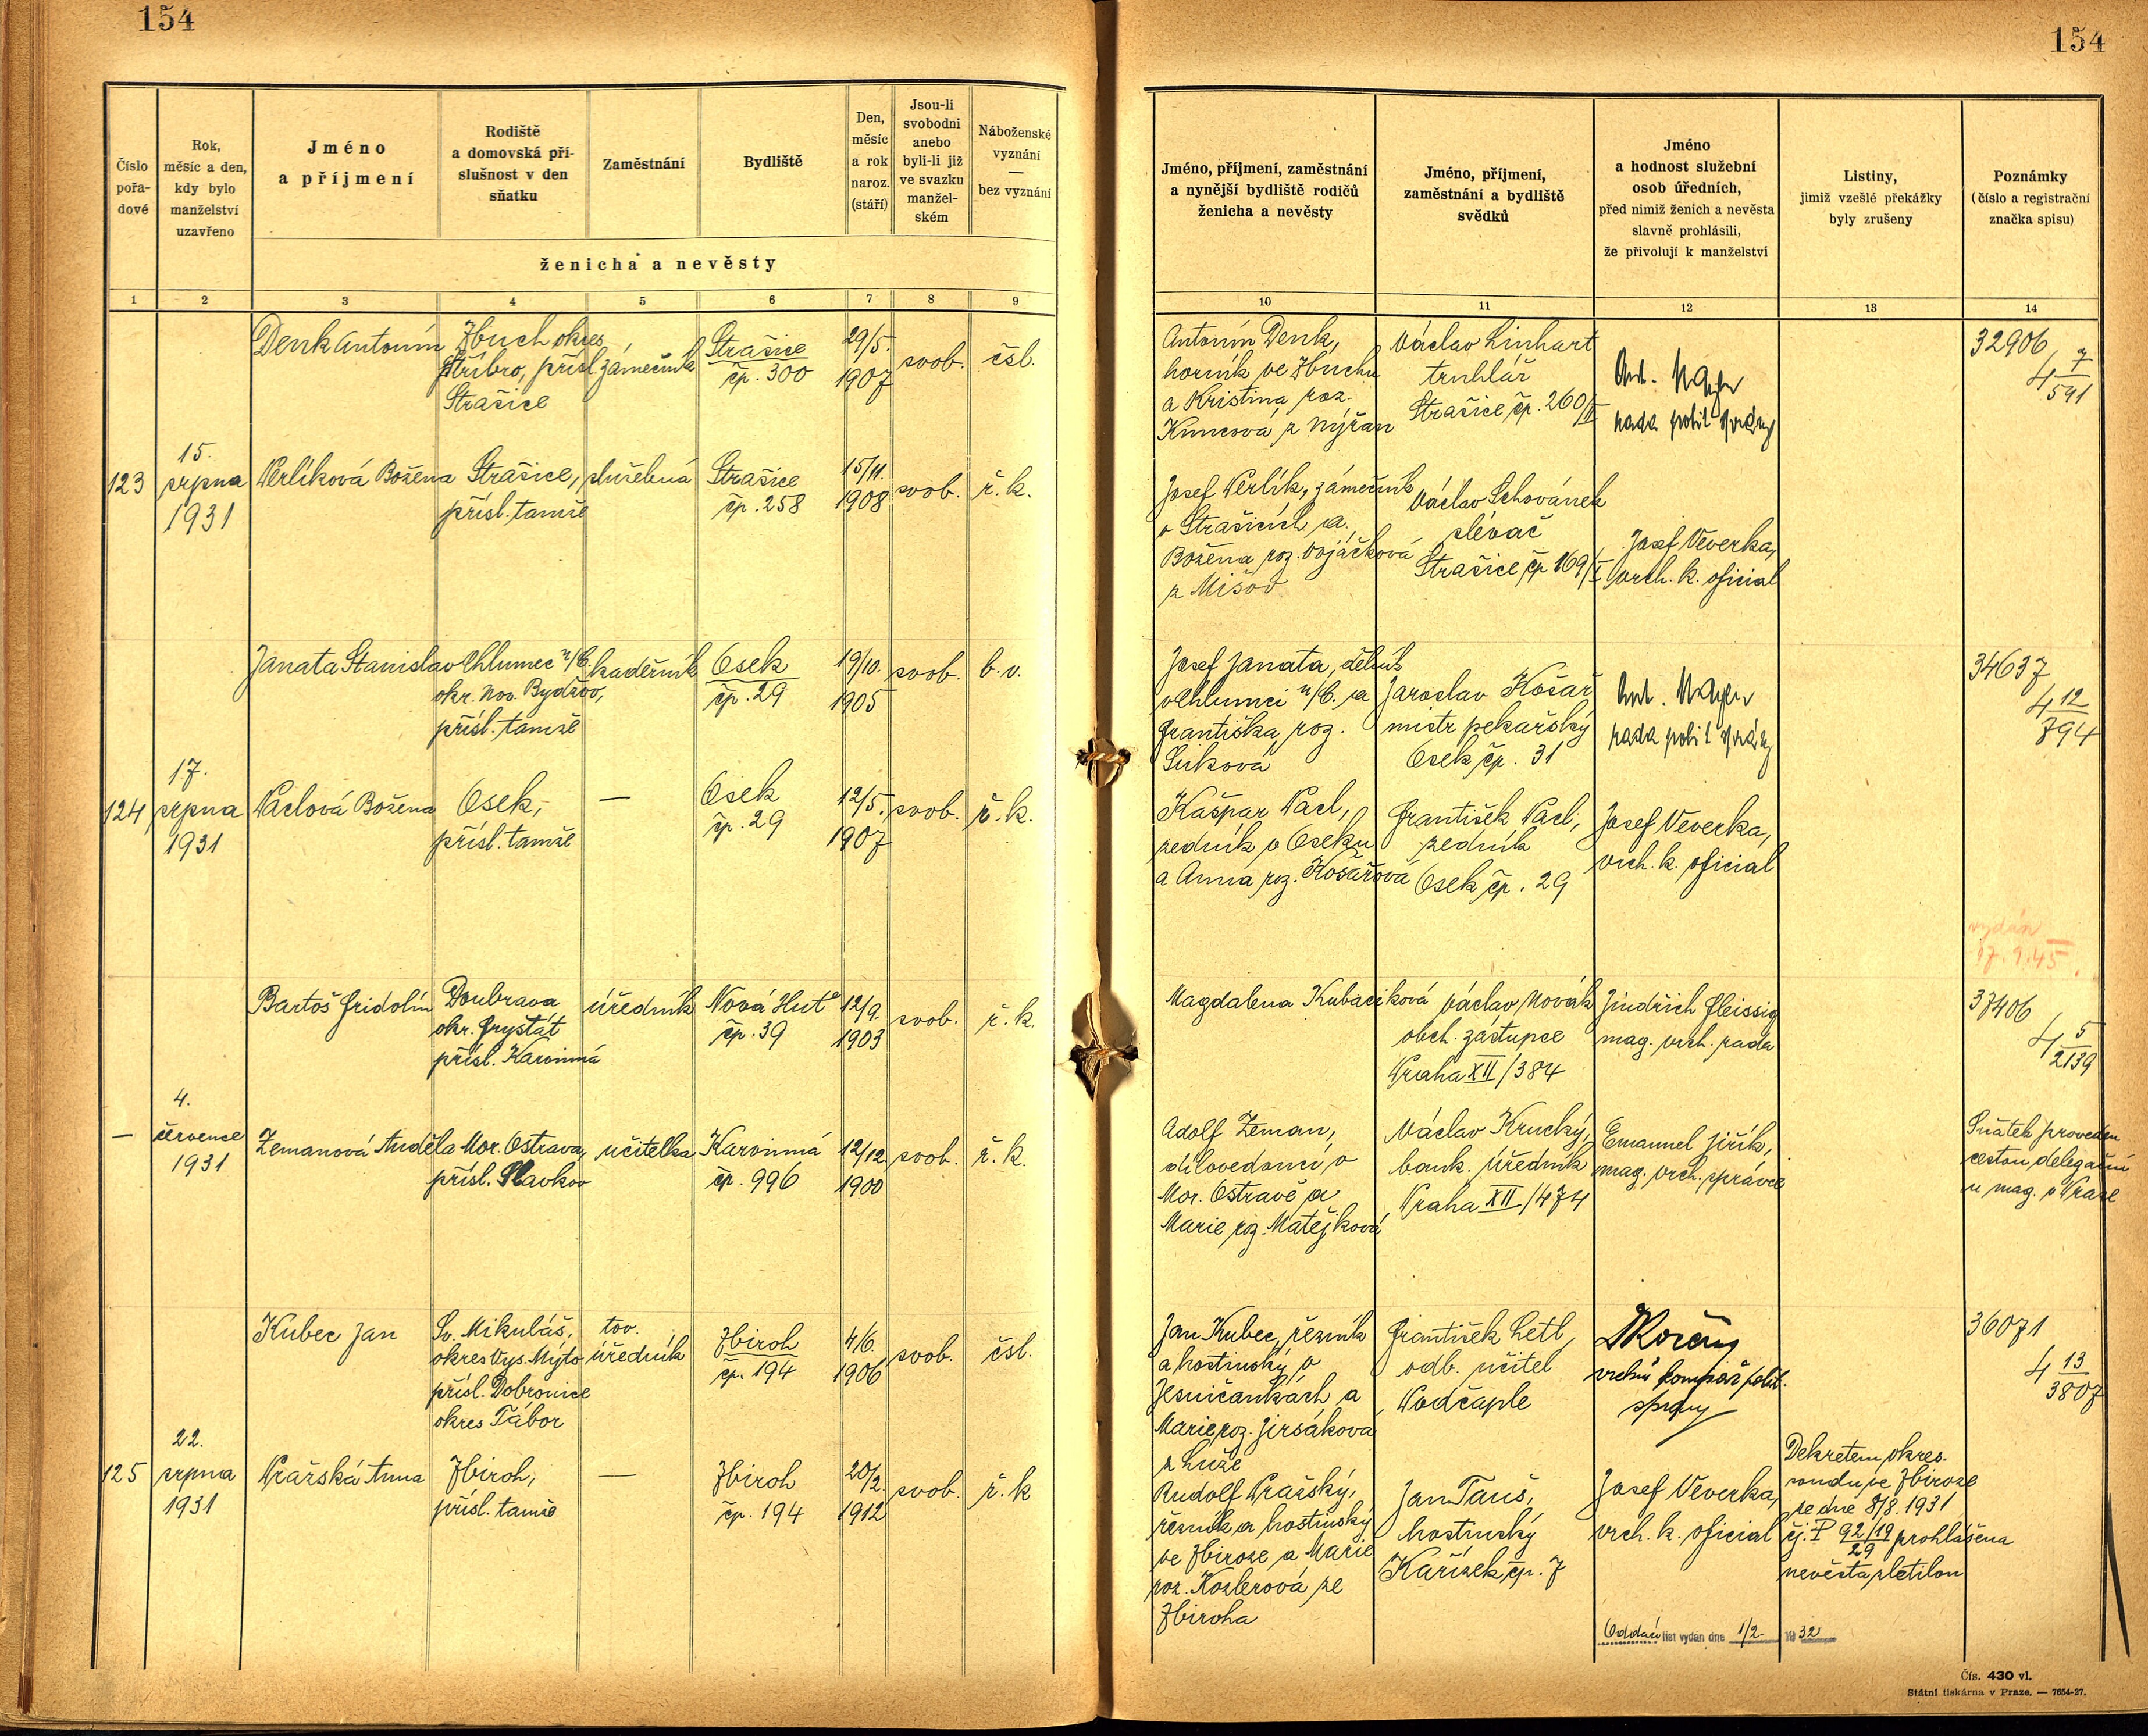 154
154
Číslo
pořa-
dové
Rok,
měsíc a den,
kdy bylo
manželství
uzavřeno
Jméno
a příjmení
Rodiště
a domovská pří-
slušnost v den
sňatku
Zaměstnání
Bydliště
Den,
měsíc
a rok
naroz.
(stáří)
Jsou-li
svobodni
anebo
byli-li již
ve svazku
manžel-
ském
Náboženské
vyznání
—
bez vyznání
ženicha a nevěsty
1 2 3 4 5 6 7 8 9
Jméno, příjmení, zaměstnání
a nynější bydliště rodičů
ženicha a nevěsty
Jméno, příjmení,
zaměstnání a bydliště
svědků
Jméno
a hodnost služební
osob úředních,
před nimiž ženich a nevěsta
slavně prohlásili,
že přivolují k manželství
Listiny,
jimiž vzešlé překážky
byly zrušeny
Poznámky
(číslo a registrační
značka spisu)
10 11 12 13 14
Denk Antonín
Zbuch okres
Stříbro, přísl.
Strašice
zámečník
Strašice
čp. 300
29/5.
1907
svob.
čsl.
Antonín Denk,
horník ve Zbuchu
a Kristina roz.
z Nýřan
Václav Linhart
truhlář
Strašice čp. 260/II
rada polit správy
32906
4 7/591
123
15.
srpna
1931
Verlíková Božena
Strašice,
přísl. tamže
služebná
Strašice
čp. 258
15/11.
1908
svob.
ř. k.
Josef Verlík, zámečník
v Strašicích a
Božena roz. Vojáčková
z Mišov
Václav Schovánek
slévač
Strašice čp 169/I
Josef Veverka,
vrch. k. oficial
Janata Stanislav
Chlumec n/C.
okr. Nov. Bydžov,
přísl. tamže
kadeřník
Osek
čp. 29
19/10.
1905
svob.
b. v.
Josef Janata, dělník
v Chlumci n/C. a
Františka roz.
Jaroslav Košař
mistr pekařský
Osek čp. 31
rada polit správy
34637
4 12/794
124
17.
srpna
1931
Vaclová Božena
Osek,
přísl. tamže
—
Osek
čp. 29
12/5.
1907
svob.
ř. k.
Kašpar Vacl,
zedník v Oseku
a Anna roz. Košařová
František Vacl,
zedník
Osek čp. 29
Josef Veverka,
vrch. k. oficial
vydán
17. 9. 45.
Bartoš Fridolín
Doubrava
okr. Fryštát
přísl. Karvinná
úředník
Nová Huť
čp. 39
12/9.
1903
svob.
ř. k.
Magdalena Kubaciková
Václav Novák
obch. zástupce
Praha XII/384
Jindřich Fleissig
mag. vrch. rada
37406
4 5/2139
—
4.
července
1931
Zemanová Anděla
Mor. Ostrava,
přísl. Slavkov
učitelka
Karvinná
čp. 996
12/12
1900
svob.
ř. k.
Adolf Zeman,
dílovedoucí v
Mor. Ostravě a
Marie roz. Matějková
Václav Krucký,
bank. úředník
Praha XII/474
Emanuel Jiřík,
mag. vrch. správce
Sňatek proveden
cestou delegační
u mag. v Praze
Kubec Jan
Sv. Mikuláš,
okres Vys. Mýto
přísl. Dobronice
okres Tábor
tov.
úředník
Zbiroh
čp. 194
4/6.
1906
svob.
čsl.
Jan Kubec, řezník
a hostinský v
Jesničankách a
Marie roz. Jirsáková
z Luže
František Letl,
odb. učitel
Vodčaple
vrchní komisař polit.
správy
36071
4 13/3807
125
22.
srpna
1931
Pražská Anna
Zbiroh,
přísl. tamže
—
Zbiroh
čp. 194
20/2.
1912
svob.
ř. k
Rudolf Pražský,
řezník a hostinský
ve Zbiroze a Marie
roz. Kozlerová ze
Zbiroha
Jan Tauš,
hostinský
Kařízek čp. 7
Josef Veverka,
vrch. k. oficial
Dekretem okres.
soudu ve Zbiroze
ze dne 8/8. 1931
čj. P 92/19/29 prohlášena
nevěsta zletilou
Oddací list vydán dne 1/2 1932
Čís. 430 vl.
Státní tiskárna v Praze. — 7654-27.